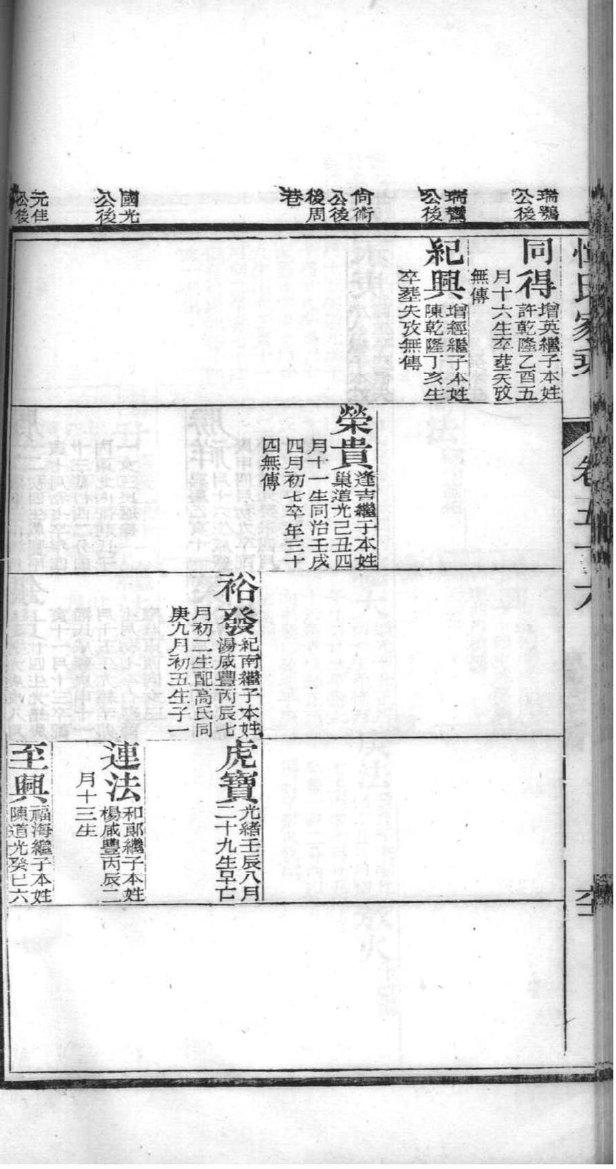 惲氏家乘
卷五十六
瑞鸚
公後
瑞鸞
公後
尙衛
公後
後周
巷
國光
公後
元佳
公後
同得
增英繼子本姓
許乾隆乙酉五
月十六生卒塟失攷
無傳
紀興
增經繼子本姓
陳乾隆丁亥生
卒塟失攷無傳
榮貴
逢吉繼子本姓
巢道光己丑四
月十一生同治壬戌
四月初七卒年三十
四無傳
裕發
紀南繼子本姓
湯咸豐丙辰七
月初二生配高氏同
庚九月初五生子一
虎寶
光緒壬辰八月
二十九生早亡
連法
和郎繼子本姓
楊咸豐丙辰二
月十三生
至興
福海繼子本姓
陳道光癸巳六